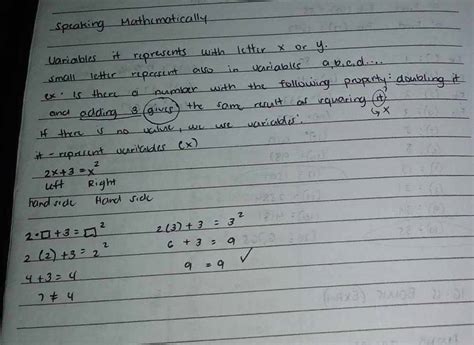 Speaking Mathematically
Variables it represents with letter x or y.
small letter represent also in variables a,b,c,d....
ex: Is there a number with the following property: doubling it
and adding 3 gives the same result as squaring it?
↳ x
If there is no value, we use variables.
it - represent varitables (x)
2x+3 = x²
Left Right
hand side Hand side
2·□+3=□²
2(2)+3=2²
4+3=4
7≠4
2(3)+3=3²
6+3=9
9=9 ✓